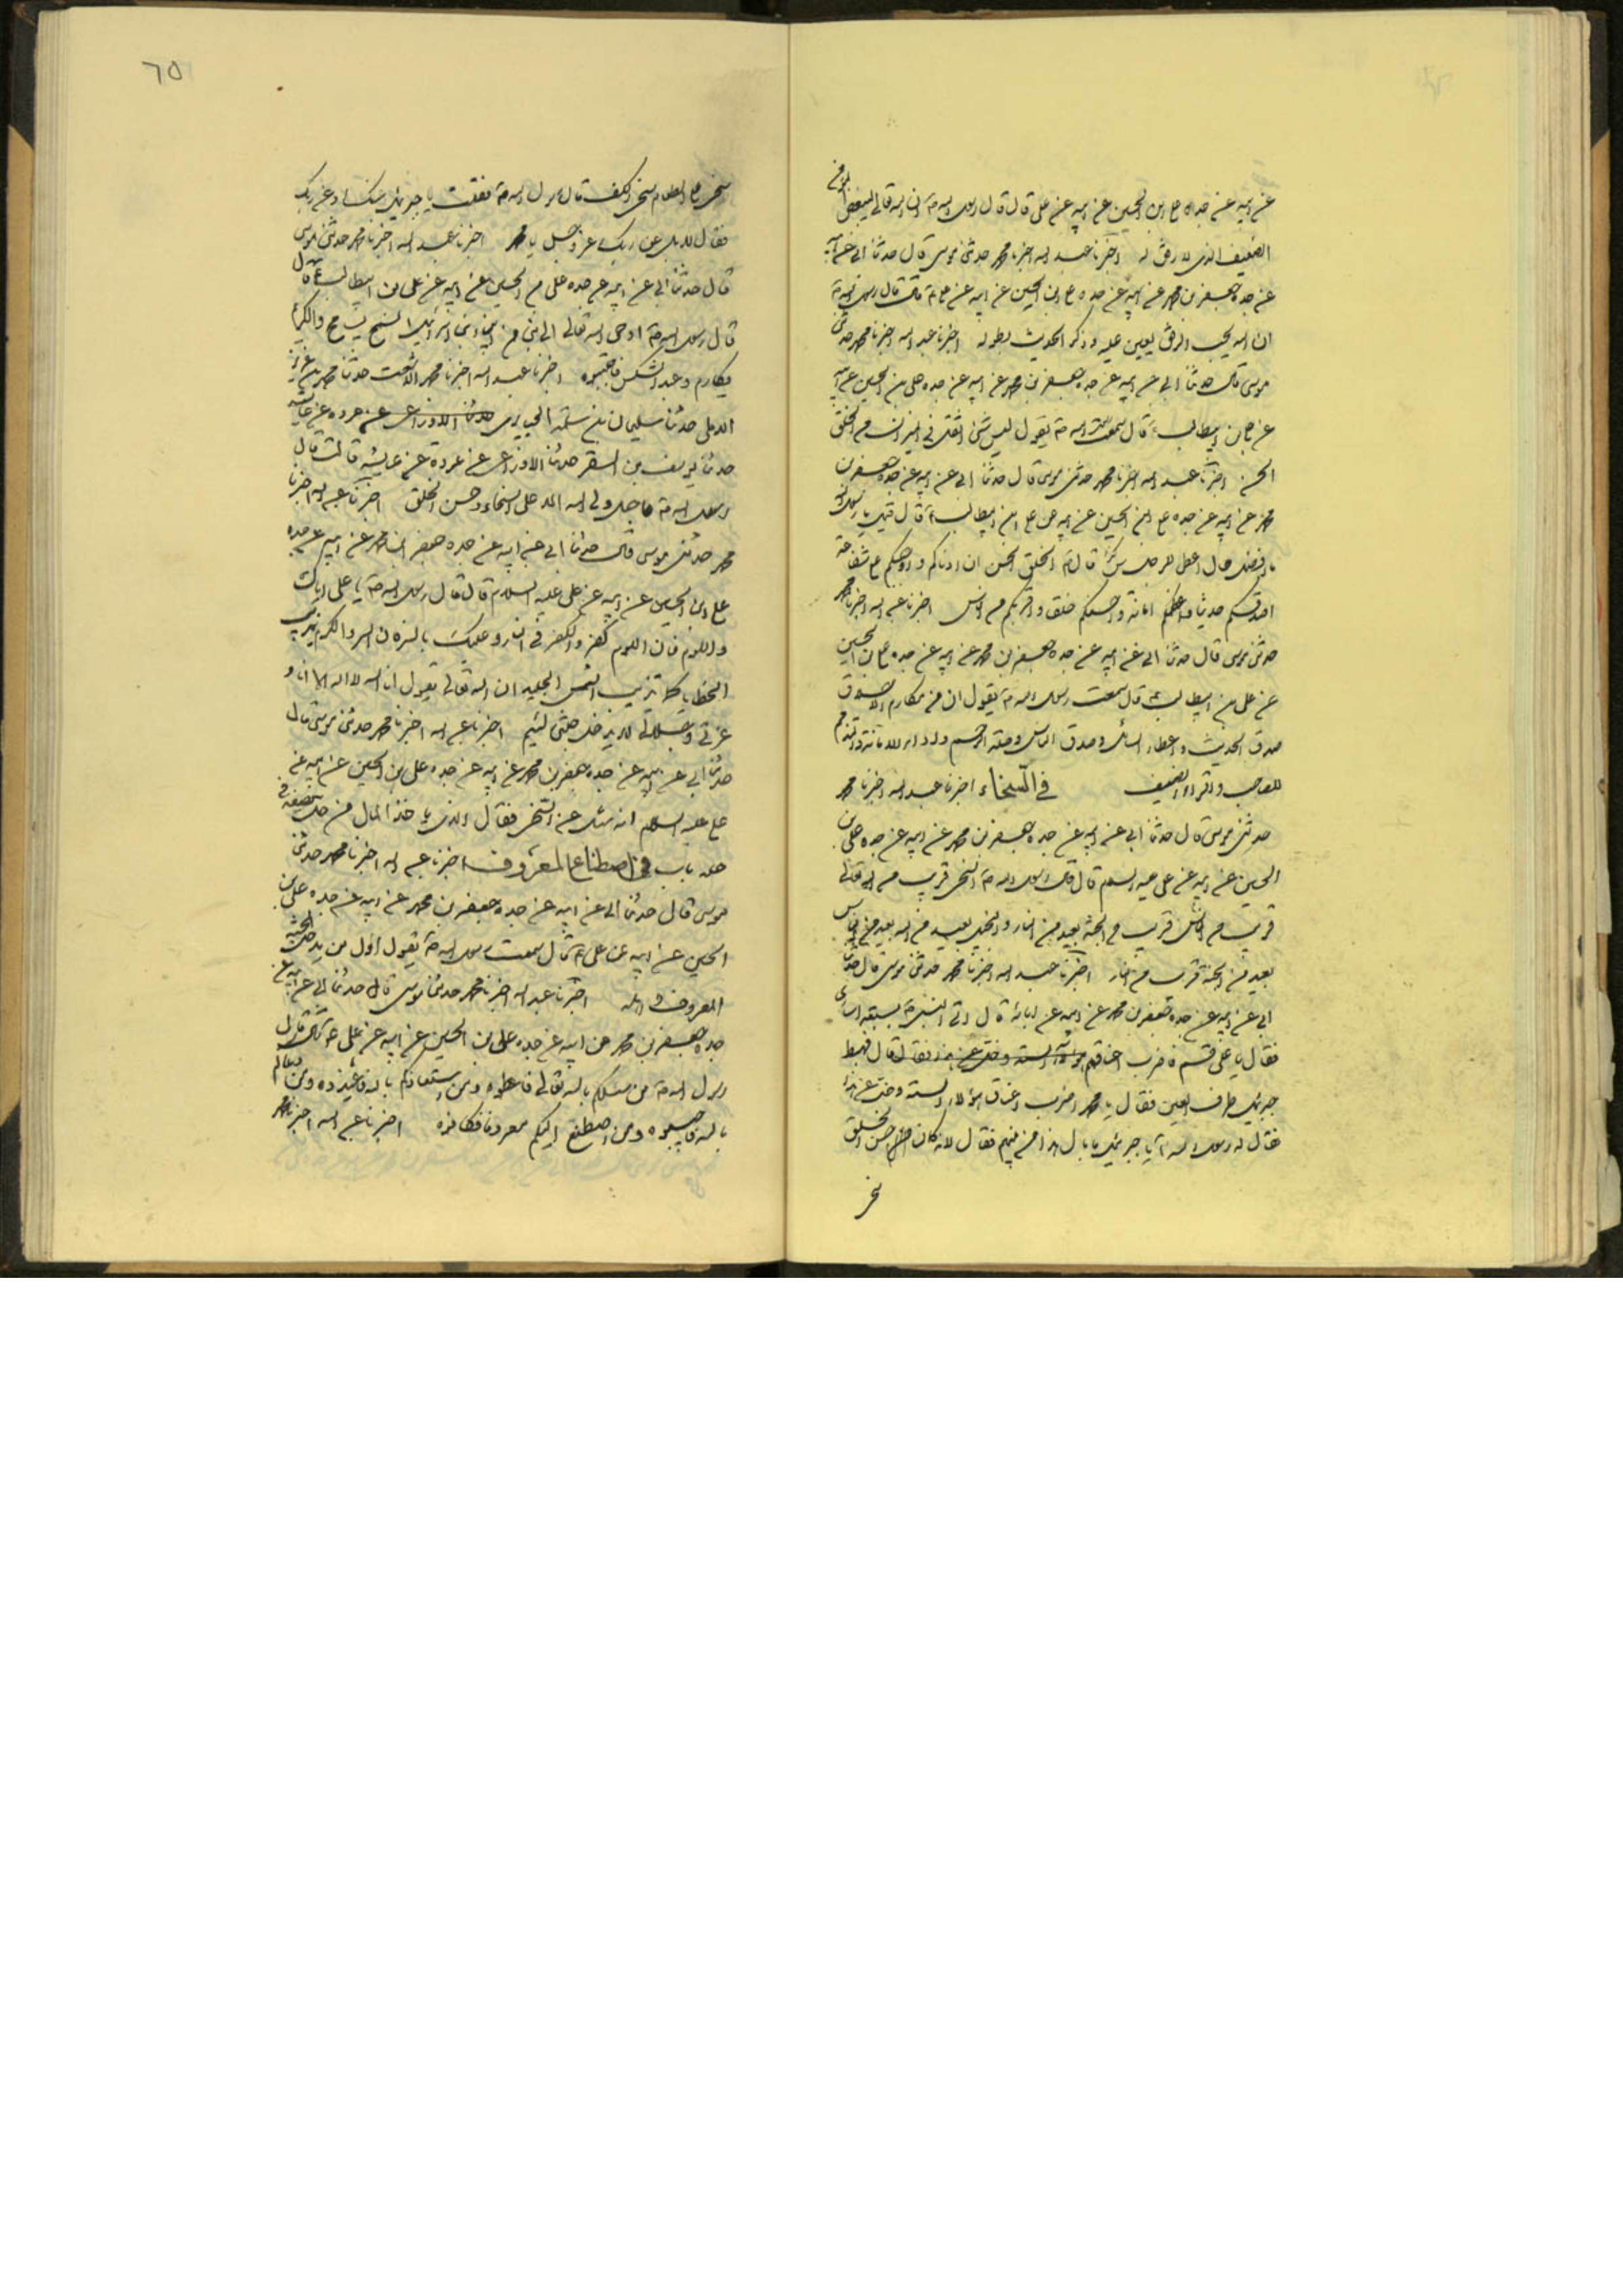 عن ابيه عن جده علي ابن الحسين عن ابيه عن علي قال قال رسول الله ص ان الله تعالى ليبغض المؤمن
الضعيف الذي لا رفق له اخبرنا عبد الله اخبرنا محمد حدثنى موسى قال حدثنا ابي عن ابيه
عن جده جعفر بن محمد عن ابيه عن جده علي ابن الحسين عن ابيه عن علي ع قال قال رسول الله ص
ان الله يحب الرفق يعين عليه وذكر الحديث بطوله اخبرنا عبد الله اخبرنا محمد حدثنى
موسى قال حدثنا ابي عن ابيه عن جده جعفر بن محمد عن ابيه عن جده علي بن الحسين عن ابيه
عن علي بن ابيطالب ع قال سمعت رسول الله ص يقول ليس شئ اثقل في الميزان من الخلق
الحسن اخبرنا عبد الله اخبرنا محمد حدثنى موسى قال حدثنا ابي عن ابيه عن جده جعفر بن
محمد عن ابيه عن جده علي ابن الحسين عن ابيه عن علي ابن ابيطالب ع قال قيل يا رسول الله
ما افضل حال اعطى للرجل قال ص الخلق الحسن ان ادناكم مني واوجبكم علي شفاعة
اصدقكم حديثا واعظكم امانة واحسنكم خلقا واقربكم من الناس اخبرنا عبد الله اخبرنا محمد
حدثنى موسى قال حدثنا ابي عن ابيه عن جده جعفر بن محمد عن ابيه عن جده علي بن الحسين
عن علي بن ابيطالب ع قال سمعت رسول الله ص يقول ان من مكارم الاخلاق
صدق الحديث واعطاء السائل وصدق الناس وصلة الرحم واداء الامانة والتذمم
للصاحب واقراء الضيف في السخاء اخبرنا عبد الله اخبرنا محمد
حدثنى موسى قال حدثنا ابي عن ابيه عن جده جعفر بن محمد عن ابيه عن جده علي بن
الحسين عن ابيه عن علي عليه السلام قال قال رسول الله ص السخي قريب من الله تعالى
قريب من الناس قريب من الجنة بعيد من النار والبخيل بعيد من الله بعيد من الناس
بعيد من الجنة قريب من النار اخبرنا عبد الله اخبرنا محمد حدثنى موسى قال حدثنا
ابي عن ابيه عن جده جعفر بن محمد عن ابيه عن ابائه قال اتي النبي ص بسبعة اسارى
فقال يا علي قم فاضرب اعناقهم قال فهبط
جبرئيل طرف العين فقال يا محمد اضرب اعناق هؤلاء الستة وخل عن هذا
فقال له رسول الله ص يا جبرئيل ما بال هذا من بينهم فقال لانه كان حسن الخلق
سخي
٦٥
سخي على الطعام سخي الكف قال رسول الله ص فقلت يا جبرئيل عنك او عن ربك
فقال لا بل عن ربك عز وجل يا محمد اخبرنا عبد الله اخبرنا محمد حدثنى موسى
قال حدثنا ابي عن ابيه عن جده علي بن الحسين عن ابيه عن علي بن ابيطالب ع قال
قال رسول الله ص اوحى الله تعالى الى نبي من انبياء بني اسرائيل
فاجتنبوه اخبرنا عبد الله اخبرنا محمد الاشعث حدثنا محمد بن عزيز
الايلي حدثنا سليمان بن سلمة الخبايرى حدثنا الاوزاعي عن عروه عن عائشه
حدثنا يوسف بن السفر حدثنا الاوزاعي عن عروة عن عايشه قالت قال
رسول الله ص ما جبل ولي الله الا على السخاء وحسن الخلق اخبرنا عبد الله اخبرنا
محمد حدثنى موسى قال حدثنا ابي عن ابيه عن جده جعفر ابن محمد عن ابيه عن جده
علي ابن الحسين عن ابيه عن علي عليه السلام قال قال رسول الله ص يا علي اياك
واللوم فان اللوم كفر والكفر في النار وعليك بالسر والكرم يذيب
الخطايا كما تذيب الشمس الجليد ان الله تعالى يقول انا الله لا اله الا انا و
عزتي وجلالي لا يدخل جنتي لئيم اخبرنا عبد الله اخبرنا محمد حدثنى موسى قال
حدثنا ابي عن ابيه عن جده جعفر بن محمد عن ابيه عن جده علي بن الحسين عن ابيه عن
علي عليه السلام انه سئل عن السخي فقال الذي ياخذ المال من حله فيضعه في
حله باب في اصطناع المعروف اخبرنا عبد الله اخبرنا محمد حدثنى
موسى قال حدثنا ابي عن ابيه عن جده جعفر بن محمد عن ابيه عن جده علي بن
الحسين عن ابيه عن علي ع قال سمعت رسول الله ص يقول اول من يدخل الجنة
المعروف واهله اخبرنا عبد الله اخبرنا محمد حدثنا موسى قال حدثنا ابي عن ابيه عن
جده جعفر بن محمد عن ابيه عن جده علي بن الحسين عن ابيه عن علي ع قال قال
رسول الله ص من سئلكم بالله تعالى فاعطوه ومن استعاذكم بالله فاعيذوه ومن دعاكم
بالله فاجيبوه ومن اصطنع اليكم معروفا فكافوه اخبرنا عبد الله اخبرنا محمد